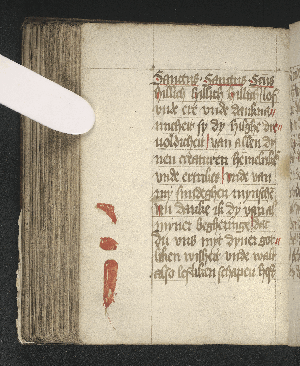 Sanctus Sanctus Scus
hillich hillich hillich lof
vnde ere vnde danknā
micheit sy dy hilghe dre
uoldicheit van allen dy
nen creaturen hemelike
vnde ertrike vnde van
my sundeghen mynsche
dy van al
myner begheringe dat
du vns myt dyner got
liken wisheit vnde
also lefliken schapen hefst